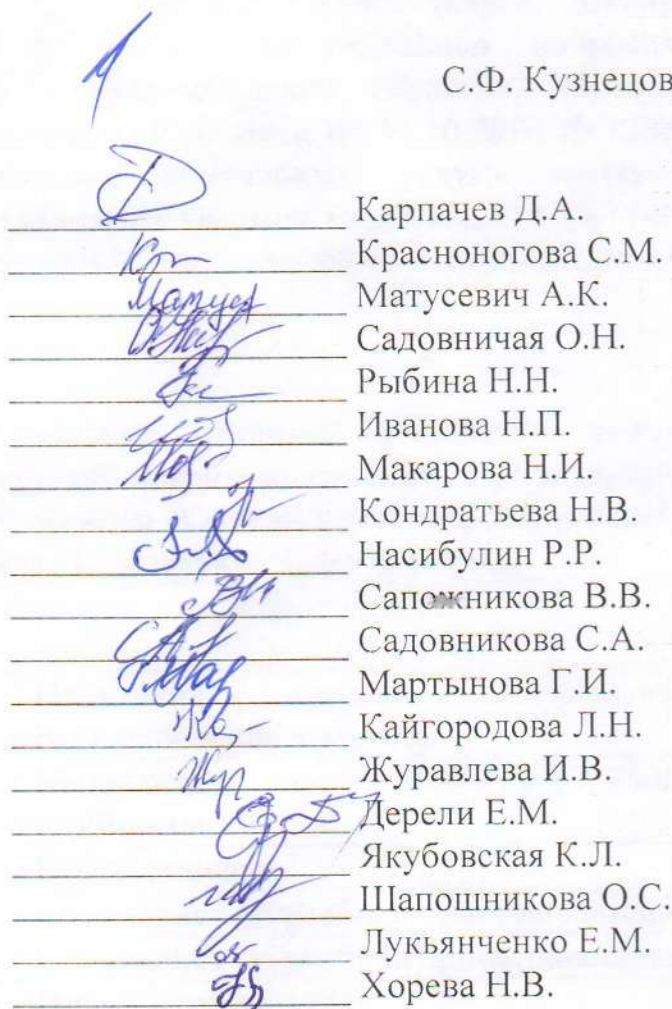 С.Ф. Кузнецов
Карпачев Д.А.
Красноногова С.М.
Матусевич А.К.
Садовничая О.Н.
Рыбина Н.Н.
Иванова Н.П.
Макарова Н.И.
Кондратьева Н.В.
Насибулин Р.Р.
Сапожникова В.В.
Садовникова С.А.
Мартынова Г.И.
Кайгородова Л.Н.
Журавлева И.В.
Дерели Е.М.
Якубовская К.Л.
Шапошникова О.С.
Лукьянченко Е.М.
Хорева Н.В.